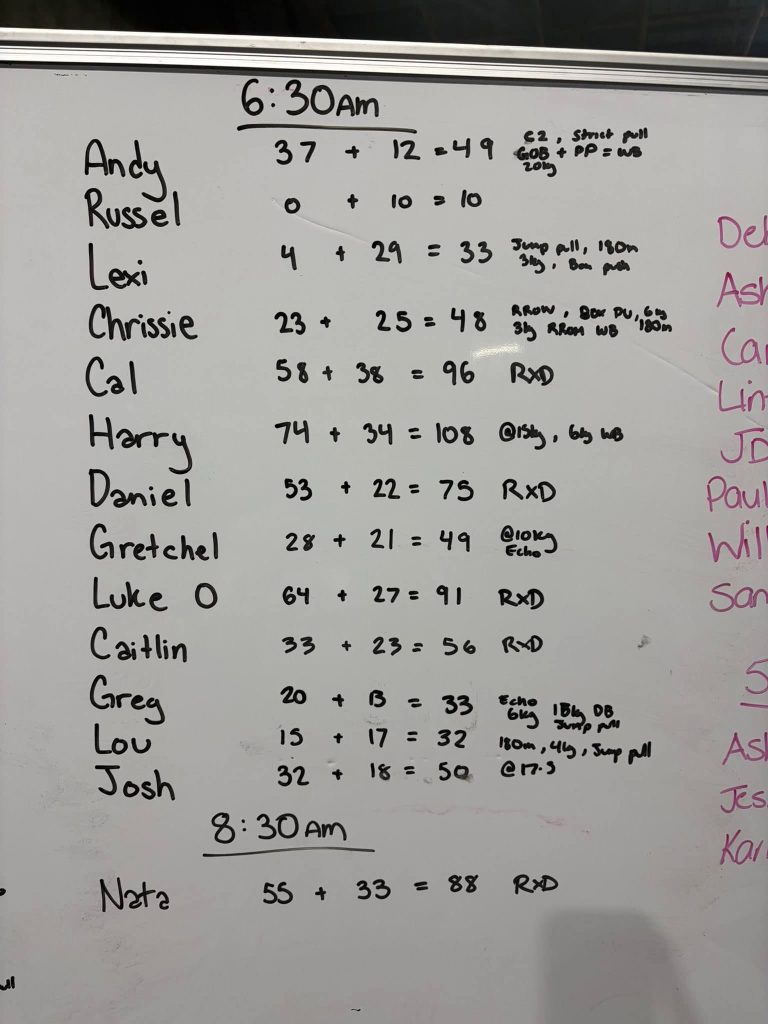 6:30AM
Andy 37 + 12 = 49 C2, Strict pull
GOB + PP = WB
20kg
Russel 0 + 10 = 10
Lexi 4 + 29 = 33 Jump pull, 180m
3kg, Box push
Chrissie 23 + 25 = 48 RROW, Box PU, 6kg
3kg RROM WB 180m
Cal 58 + 38 = 96 RXD
Harry 74 + 34 = 108 @15kg, 6kg WB
Daniel 53 + 22 = 75 RXD
Gretchel 28 + 21 = 49 @10kg
Echo
Luke O 64 + 27 = 91 RXD
Caitlin 33 + 23 = 56 RXD
Greg 20 + 13 = 33 Echo
6kg 15kg DB
Jump pull
Lou 15 + 17 = 32 180m, 4kg, Jump pull
Josh 32 + 18 = 50 @17.5
8:30AM
Nata 55 + 33 = 88 RXD
JD
Paul
Will